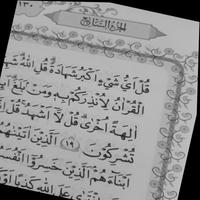 ١٣٠
الجزء السابع
قُلْ أَيُّ شَيْءٍ أَكْبَرُ شَهَادَةً قُلِ اللَّهُ
الْقُرْآنُ لِأُنْذِرَكُمْ بِهِ وَمَنْ بَلَغَ
آلِهَةً أُخْرَى قُلْ لَا أَشْهَدُ قُلْ
تُشْرِكُونَ ١٩ الَّذِينَ آتَيْنَاهُمُ
أَبْنَاءَهُمُ الَّذِينَ خَسِرُوا
عَلَى اللَّهِ كَذِبًا أَوْ